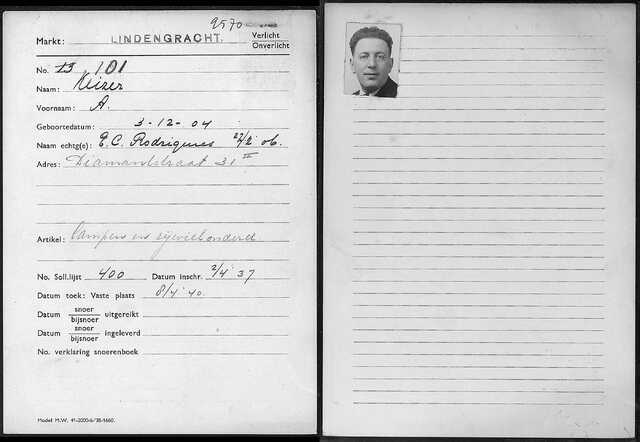 9570
Markt: LINDENGRACHT. Verlicht
Onverlicht
No. 13 101
Naam: Keizer
Voornaam: A.
Geboortedatum: 3-12-04
Naam echtg(e): E.C. Rodrigues 22/2 06.
Adres: Diamantstraat 31 II
Artikel: Lampen en rijwielonderd
No. Soll.lijst 400 Datum inschr. 2/4 37
Datum toek: Vaste plaats 8/4 '40.
Datum snoer/bijsnoer uitgereikt
Datum snoer/bijsnoer ingeleverd
No. verklaring snoerenboek
Model M.W. 41-2000-6/'38-1660.